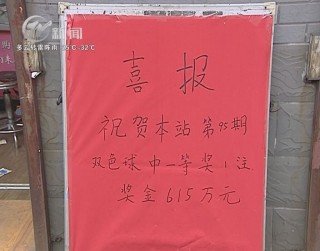 新闻
多云转雷阵雨 25℃-32℃
喜报
祝贺本站 第95期
双色球中一等奖1注
奖金615万元